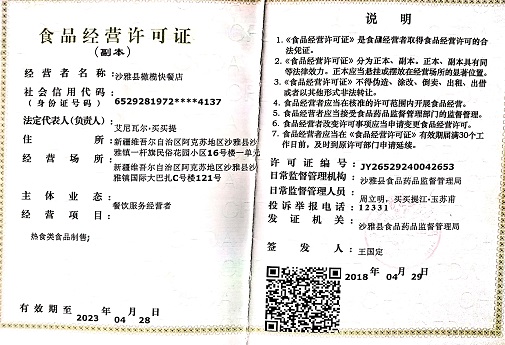 食品经营许可证
(副本)
经营者名称:沙雅县橄榄快餐店
社会信用代码:
(身份证号码) 6529281972****4137
法定代表人(负责人):
艾尼瓦尔·买买提
住所:新疆维吾尔自治区阿克苏地区沙雅县沙
雅镇一杆旗民俗花园小区16号楼一单元
经营场所:新疆维吾尔自治区阿克苏地区沙雅县沙
雅镇国际大巴扎C号楼121号
主体业态:
餐饮服务经营者
经营项目:
热食类食品制售;
有效期至 2023 年 04 月 28 日
说明
1.《食品经营许可证》是食品经营者取得食品经营许可的合
法凭证。
2.《食品经营许可证》分为正本、副本。正本、副本具有同
等法律效力。正本应当悬挂或摆放在经营场所的显著位置。
3.《食品经营许可证》不得伪造、涂改、倒卖、出租、出借
或者以其他形式非法转让。
4.食品经营者应当在核准的许可范围内开展食品经营。
5.食品经营者应当接受食品药品监督管理部门的监督管理。
6.食品经营者改变许可事项应当申请变更食品经营许可。
7.食品经营者应当在《食品经营许可证》有效期届满30个工
作日前,及时到原许可部门申请延续。
许可证编号: JY26529240042653
日常监督管理机构: 沙雅县食品药品监督管理局
日常监督管理人员: 周立明,买买提江·玉苏甫
投诉举报电话: 12331
发证机关: 沙雅县食品药品监督管理局
签发人: 王国定
2018 年 04 月 29 日